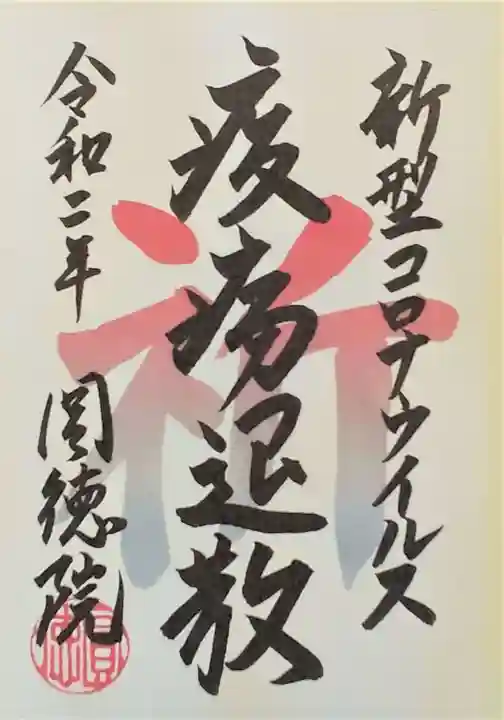 新型コロナウイルス
疫病退散
祈
令和二年 圓徳院